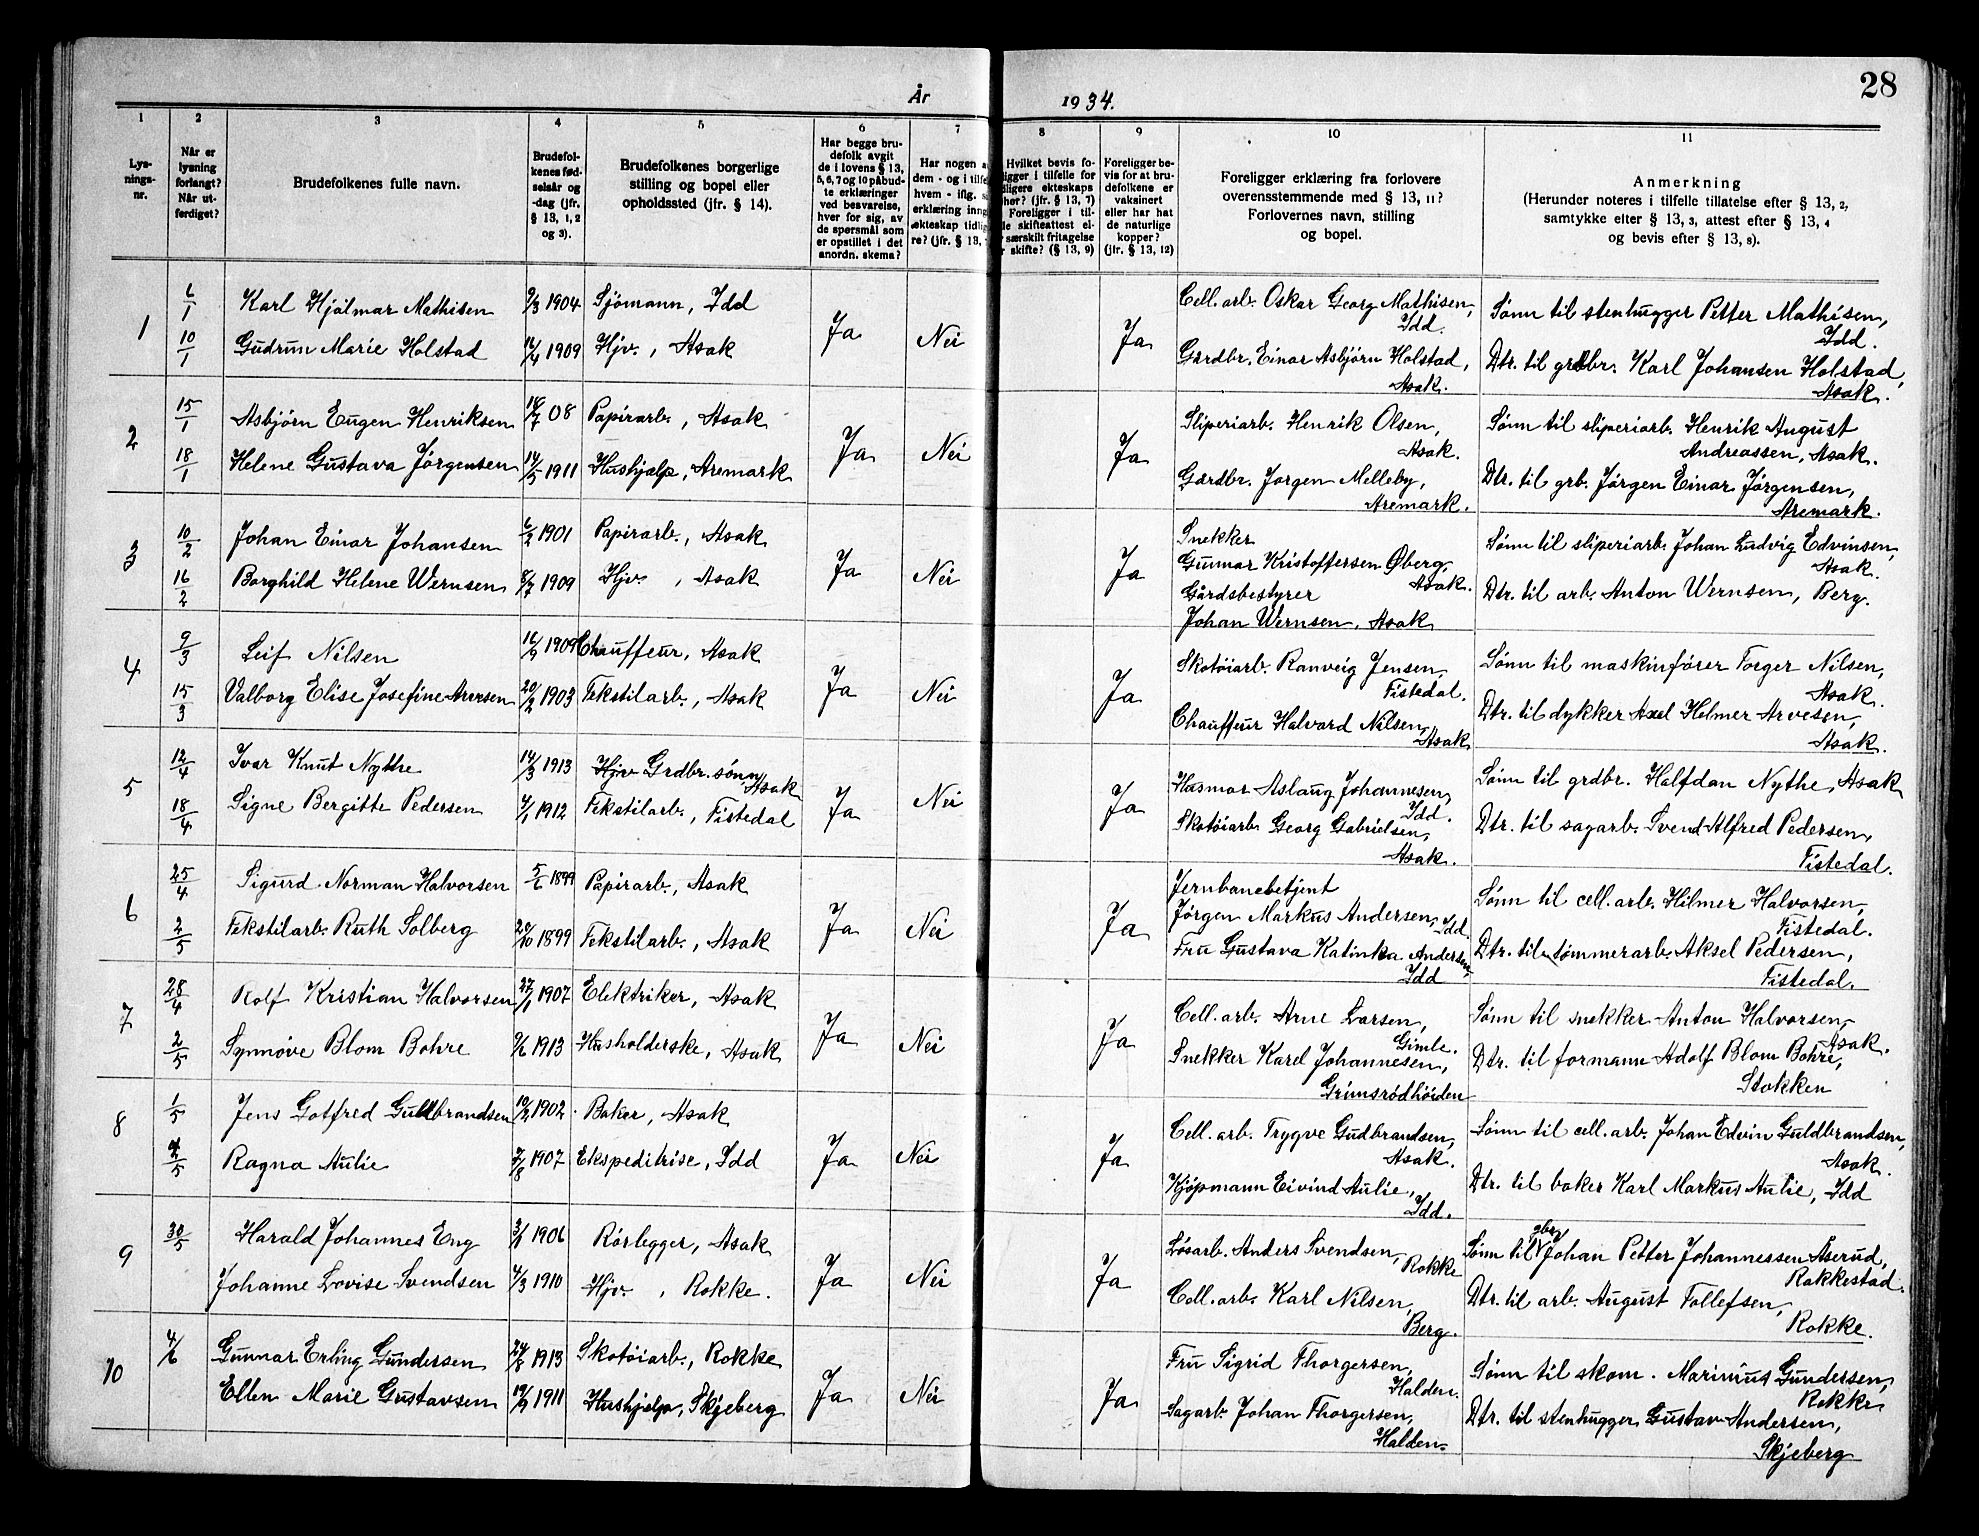 28
År 1934.
1 2 3 4 5 6 7 8 9 10 11
Lys-
nings-
nr.
Når er
lysning
forlangt?
Når ut-
ferdiget?
Brudefolkenes fulle navn.
Brudefol-
kenes fød-
selsår og
-dag (jfr.
§ 13, 1, 2
og 3).
Brudefolkenes borgerlige
stilling og bopel eller
opholdssted (jfr. § 14).
Har begge bru-
defolk avgit
de i lovens § 13,
5, 6, 7 og 10 påbud-
te erklæringer
ved besvarelse,
hver for sig, av
de spørsmål som
er opstillet i det
anordn. skema?
Har nogen a
dem - og i tilfe
hvem - iflg. s
erklæring inng
ekteskap tidlig
re? (jfr. § 13,
Hvilket bevis fo-
ligger i tilfelle for
dligere ekteskaps
her? (jfr. § 13, 7)
Foreligger i til-
le skifteattest el-
r særskilt fritagelse
r skifte? (§ 13, 9)
Foreligger be-
vis for at bru-
defolkene er
vaksinert
eller har hat
de naturlige
kopper?
(jfr. § 13, 12)
Foreligger erklæring fra forlovere
overensstemmende med § 13, 11?
Forlovernes navn, stilling
og bopel.
Anmerkning
(Herunder noteres i tilfelle tillatelse efter § 13, 2,
samtykke efter § 13, 3, attest efter § 13, 4
og bevis efter § 13, 8).
1 6/1 Karl Hjalmar Mathisen 9/3 1904 Sjømann, Idd Ja Nei Ja Cell. arb. Oskar Georg Mathisen, Idd. Sønn til stenhugger Petter Mathisen, Idd.
10/1 Gudrun Marie Holstad 16/4 1909 Hjv., Asak Gårdbr. Einar Asbjørn Holstad, Asak. Dtr. til grdbr. Karl Johansen Holstad, Asak.
2 15/1 Asbjørn Eugen Henriksen 16/7 08 Papirarb., Asak Ja Nei Ja Sliperiarb. Henrik Olsen, Asak. Sønn til sliperiarb. Henrik August Andreassen, Asak.
18/1 Helene Gustava Jørgensen 14/5 1911 Hushjelp, Aremark Gårdbr. Jørgen Melleby, Aremark. Dtr. til grb. Jørgen Einar Jørgensen, Aremark.
3 10/2 Johan Einar Johansen 6/2 1901 Papirarb., Asak Ja Nei Ja Snekker Gunnar Kristoffersen Øberg, Asak. Sønn til sliperiarb. Johan Ludvig Edvinsen, Asak.
16/2 Borghild Helene Wernsen 1909 Hjv., Asak Gårdsbestyrer Johan Wernsen, Asak Dtr. til arb. Anton Wernsen, Berg.
4 9/3 Leif Nilsen 1909 Chauffeur, Asak Ja Nei Ja Skotøiarb. Ranveig Jensen, Tistedal. Sønn til maskinfører Torger Nilsen, Asak.
15/3 Valborg Elise Josefine Arvesen 20/2 1903 Tekstilarb., Asak Chauffeur Halvard Nilsen, Asak Dtr. til dykker Axel Helmer Arvesen, Asak.
5 12/4 Ivar Knut Nythe 14/3 1913 Hjv Grdbr. sønn, Asak Ja Nei Ja Husmor Aslaug Johannesen, Idd. Sønn til grdbr. Halfdan Nythe, Asak
18/4 Signe Bergitte Pedersen 4/1 1912 Tekstilarb., Tistedal Skotøiarb. Georg Gabrielsen, Asak. Dtr. til sagarb. Svend Alfred Pedersen, Tistedal.
6 25/4 Sigurd Norman Halvorsen 5/6 1899 Papirarb., Asak Ja Nei Ja Jernbanebetjent Jørgen Markus Andersen, Idd. Sønn til cell. arb. Hilmer Halvorsen, Tistedal.
2/5 Tekstilarb. Ruth Solberg 20/10 1899 Tekstilarb., Asak Fru Gustava Katinka Andersen, Idd Dtr. til tømmerarb. Aksel Pedersen, Tistedal.
7 28/4 Rolf Kristian Halvorsen 27/1 1907 Elektriker, Asak Ja Nei Ja Cell. arb. Arne Larsen, Gimle. Sønn til snekker Anton Halvorsen, Asak.
2/5 Synnøve Blom Bohre 9/6 1913 Husholderske, Asak Snekker Karel Johannesen, Grimsrødhøiden Dtr. til formann Adolf Blom Bohre, Stokken
8 1/5 Jens Gotfred Guldbrandsen 10/2 1902 Baker, Asak Ja Nei Ja Cell. arb. Trygve Gudbrandsen, Asak. Sønn til cell. arb. Johan Edvin Guldbrandsen, Asak.
2/5 Ragna Aulie 7/8 1907 Ekspeditrise, Idd Kjøpmann Eivind Aulie, Idd. Dtr. til baker Karl Markus Aulie, Idd
9 30/5 Harald Johannes Eng 3/1 1906 Rørlegger, Asak Ja Nei Ja Løsarb. Anders Svendsen, Rokke Sønn til gbr. Johan Petter Johannessen Åserud, Rakkestad.
Johanne Lovise Svendsen 4/3 1910 Hjv., Rokke. Cell. arb. Karl Nilsen, Berg. Dtr. til arb. August Tollefsen, Rokke.
10 4/6 Gunnar Erling Gundersen 24/8 1913 Skotøiarb., Rokke Ja Nei Ja Fru Sigrid Thorgersen, Halden. Sønn til skom. Marinius Gundersen, Rokke
Ellen Marie Gustavsen 1911 Hushjelp, Skjeberg Sagarb. Johan Thorgersen, Halden. Dtr. til stenhugger Gustav Andersen, Skjeberg